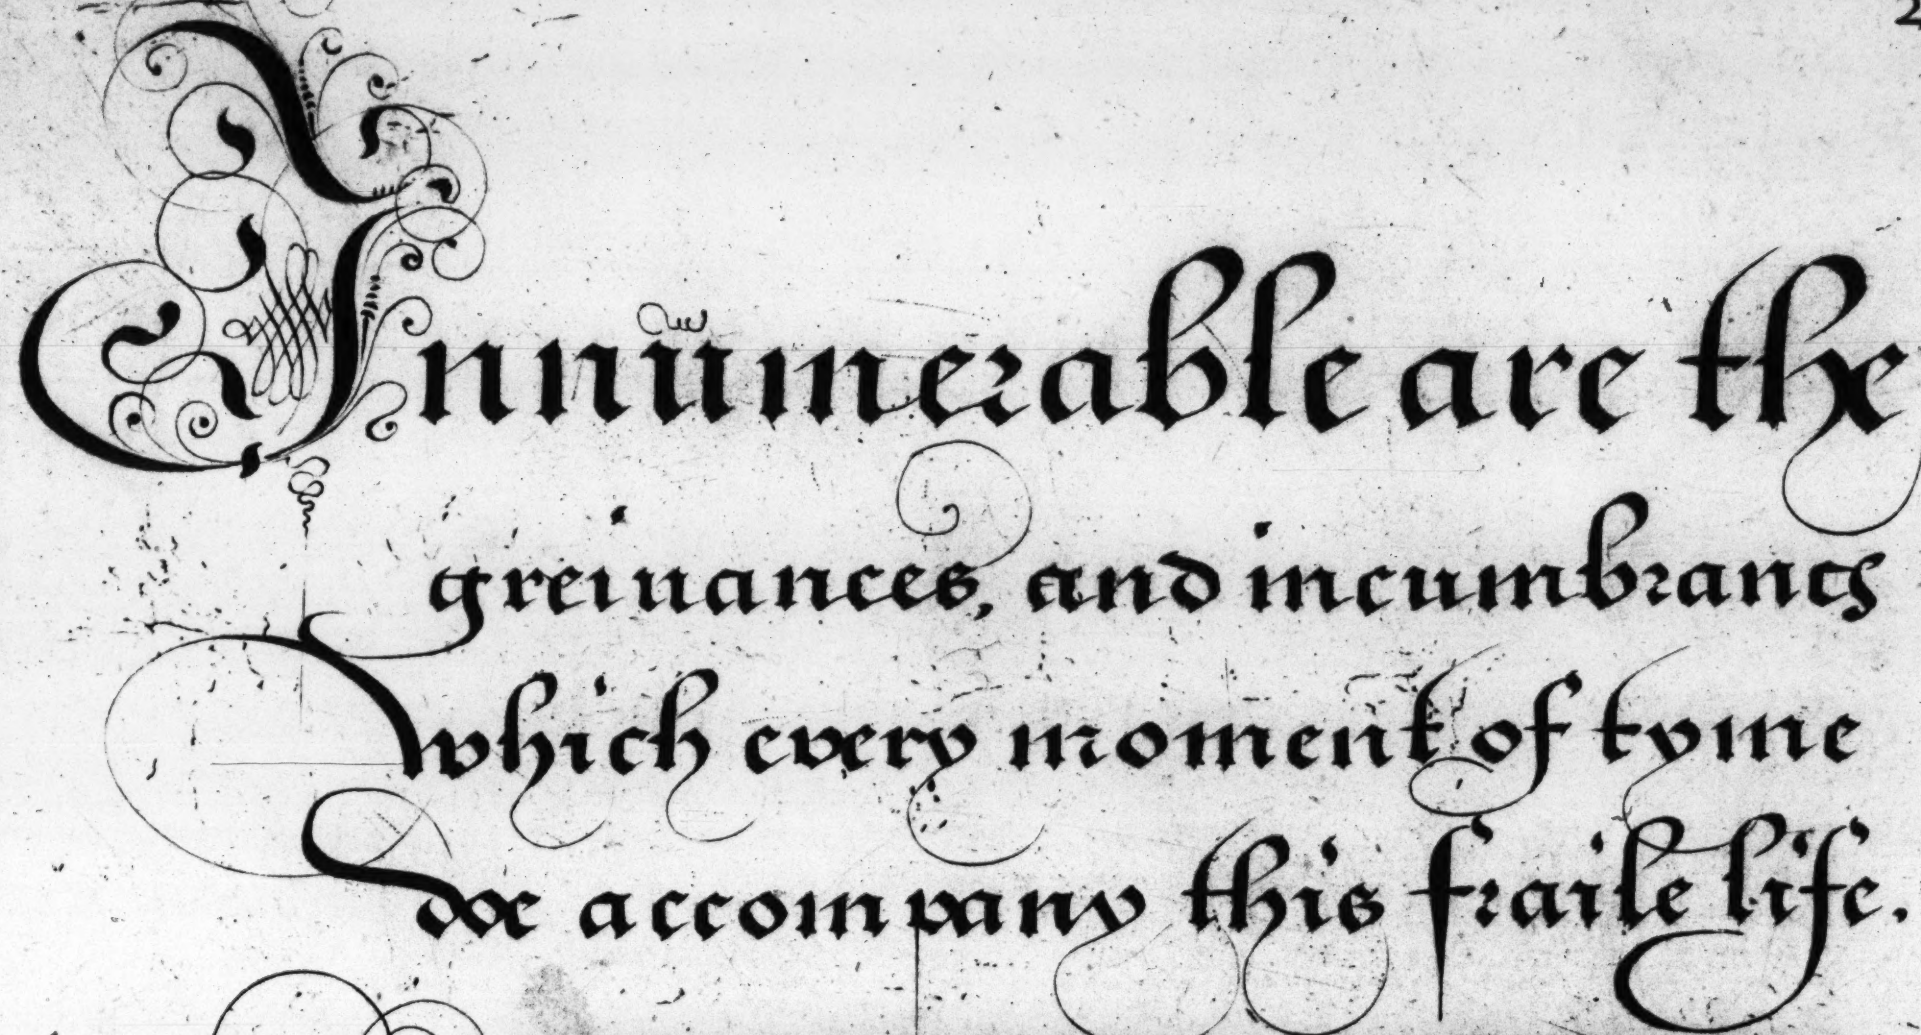 Innumerable are the
greiuances, and incumbrancꝭ
which every moment of tyme
doe accompany this fraile life.